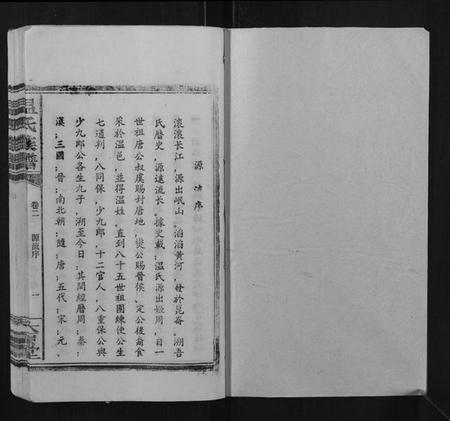 源流序
滚滚长江，源出岷山，滔滔黄河，发於昆崙。溯吾
氏曆史，源遠流长，據史載：温氏源出姬周，自一
世祖唐公叔虞賜封唐地，燮公賜晉侯、定公後裔食
采於温邑，並得温姓，直到八十五世祖團練使公生
七通判，八同保，少九郎，十二官人，八重保公與
少九郎公各生九子，溯至今日；其間經曆周；秦；
漢；三國；晉；南北朝；隨；唐；五代；宋；元，
温氏族譜
卷二
源流序
一